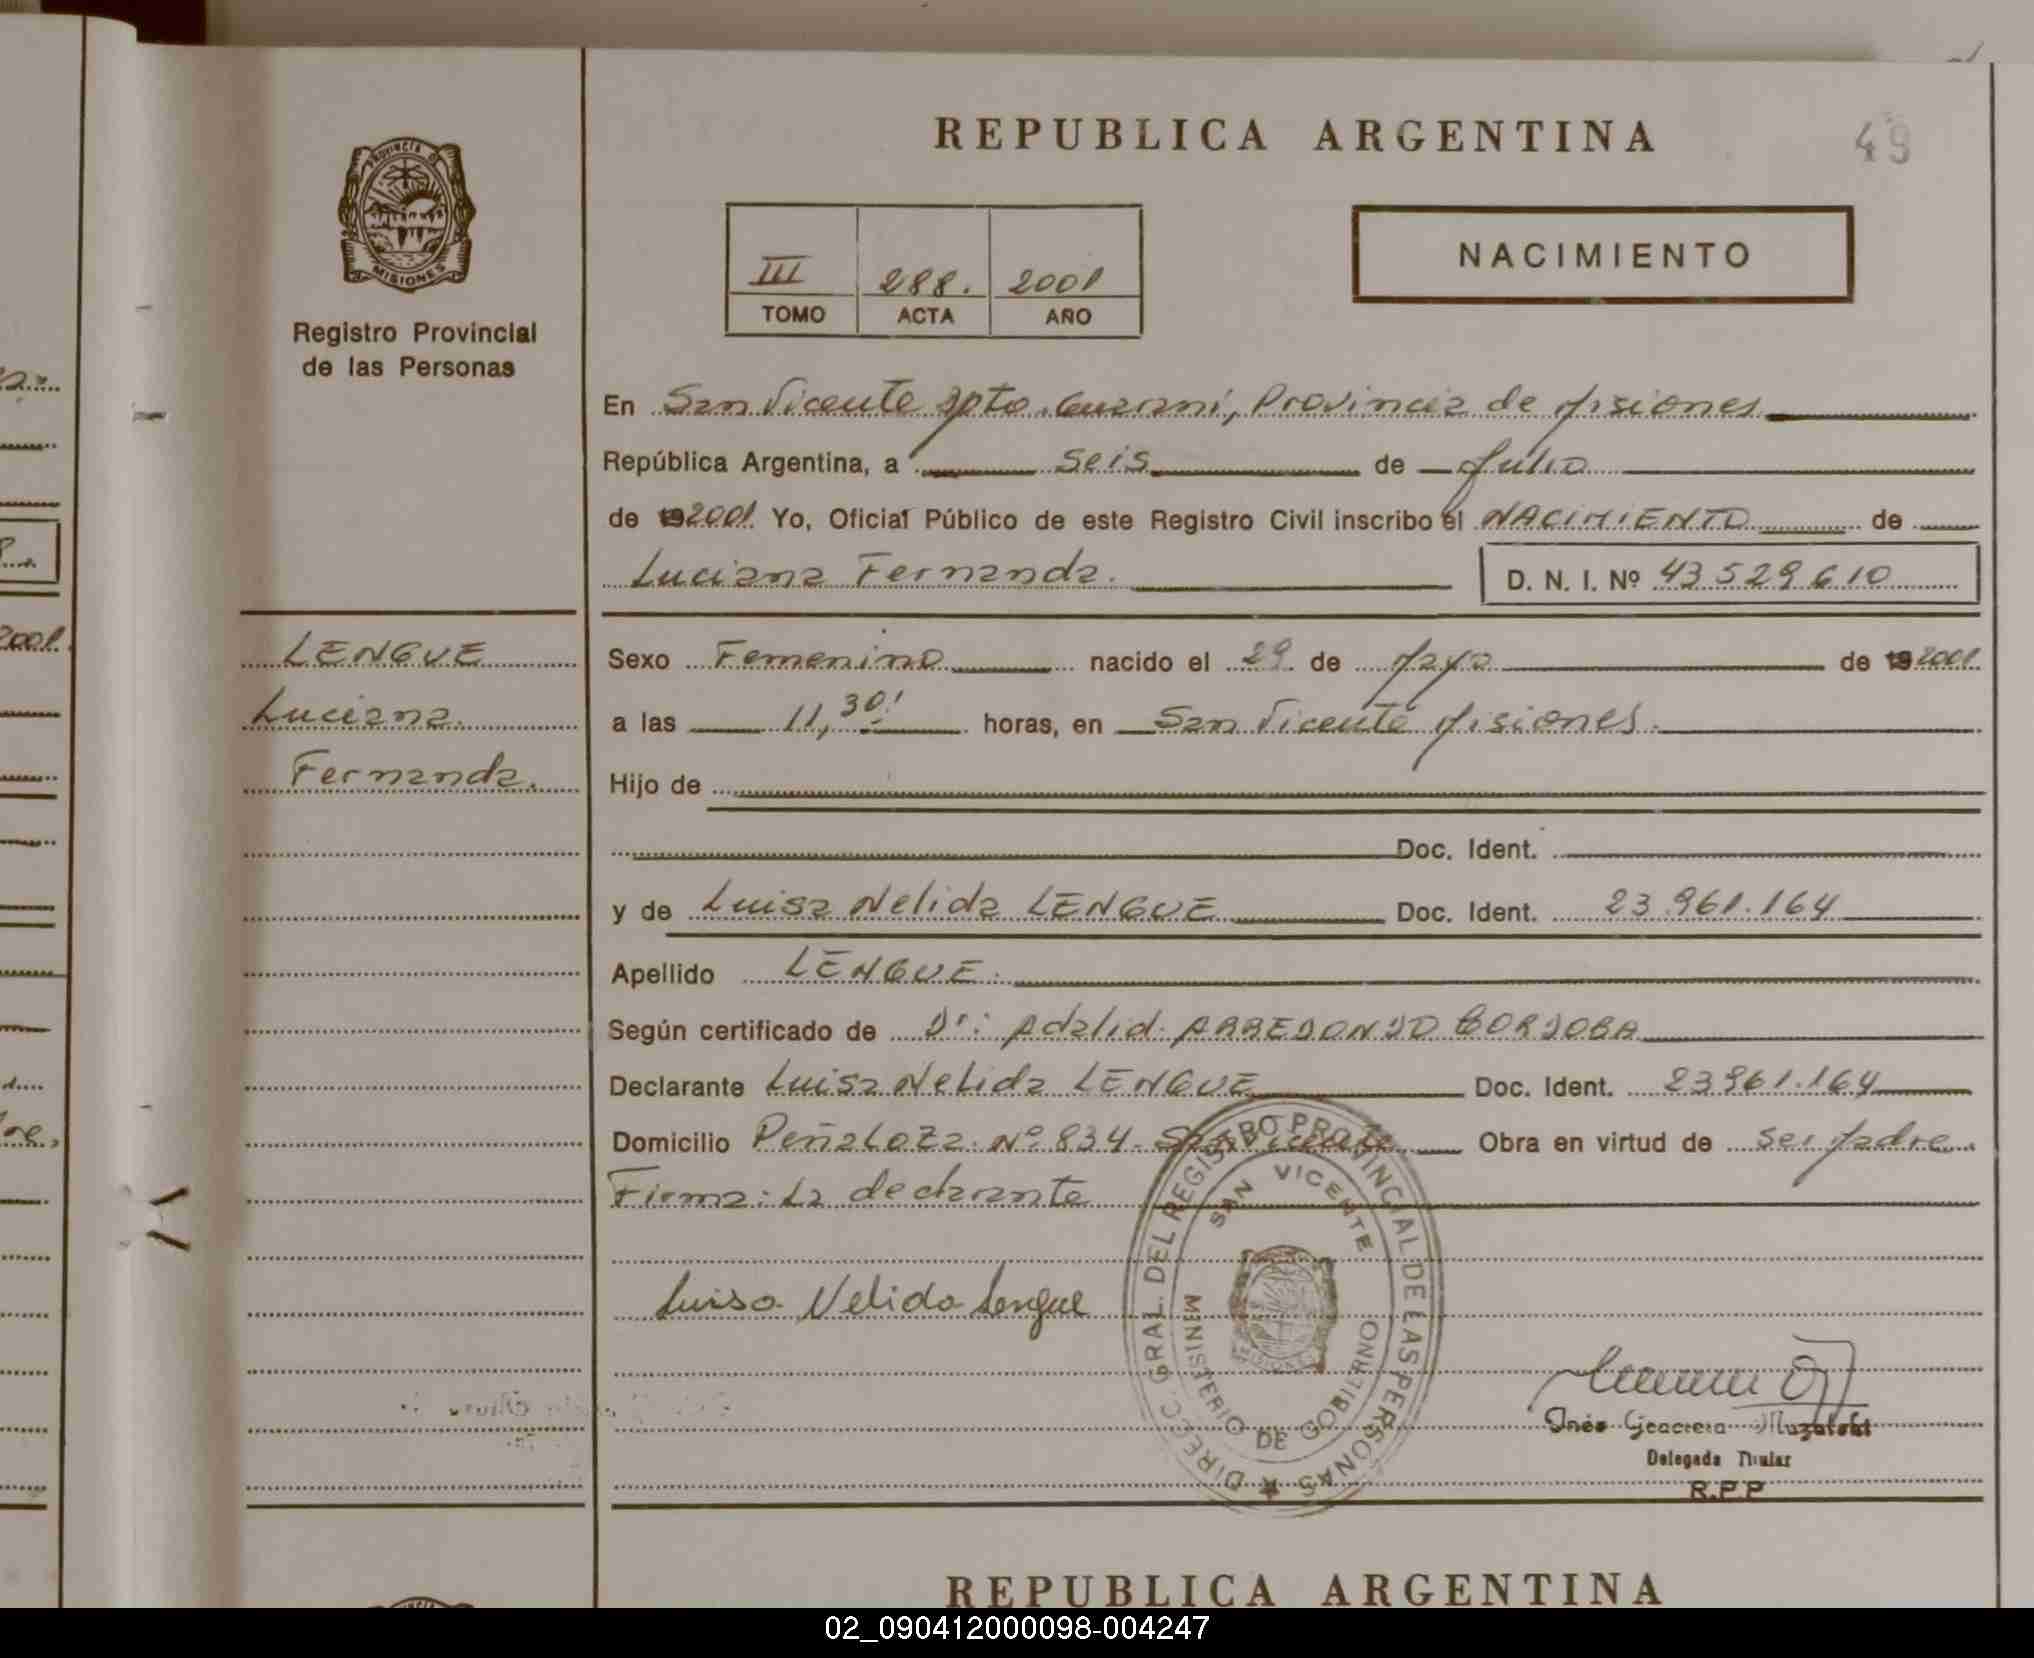 REPUBLICA ARGENTINA
49
PROVINCIA DE
MISIONES
Registro Provincial
de las Personas
III 288. 2001
TOMO ACTA AÑO
NACIMIENTO
En San Vicente Dpto. Guarani, Provincia de Misiones
República Argentina, a Seis de Julio
de 19 2001. Yo, Oficial Público de este Registro Civil inscribo el NACIMIENTO de
Luciana Fernanda. D. N. I. Nº 43529610
LENGUE
Luciana
Fernanda.
Sexo Femenino nacido el 29 de Mayo de 19 2001
a las 11,30' horas, en San Vicente Misiones.
Hijo de
Doc. Ident.
y de Luisa Nelida LENGUE Doc. Ident. 23.961.164
Apellido LENGUE.
Según certificado de Dr: Adalid ARREDONDO CORDOBA
Declarante Luisa Nelida LENGUE Doc. Ident. 23961.164
Domicilio Peñaloza Nº 834 - San Vicente Obra en virtud de ser Madre.
Firma: La declarante
Luisa Nelida Lengue
DIRECC. GRAL. DEL REGISTRO PROVINCIAL DE LAS PERSONAS
SAN VICENTE
MINISTERIO DE GOBIERNO
Delegada Titular
R.P.P
REPUBLICA ARGENTINA
2001.
02_090412000098-004247